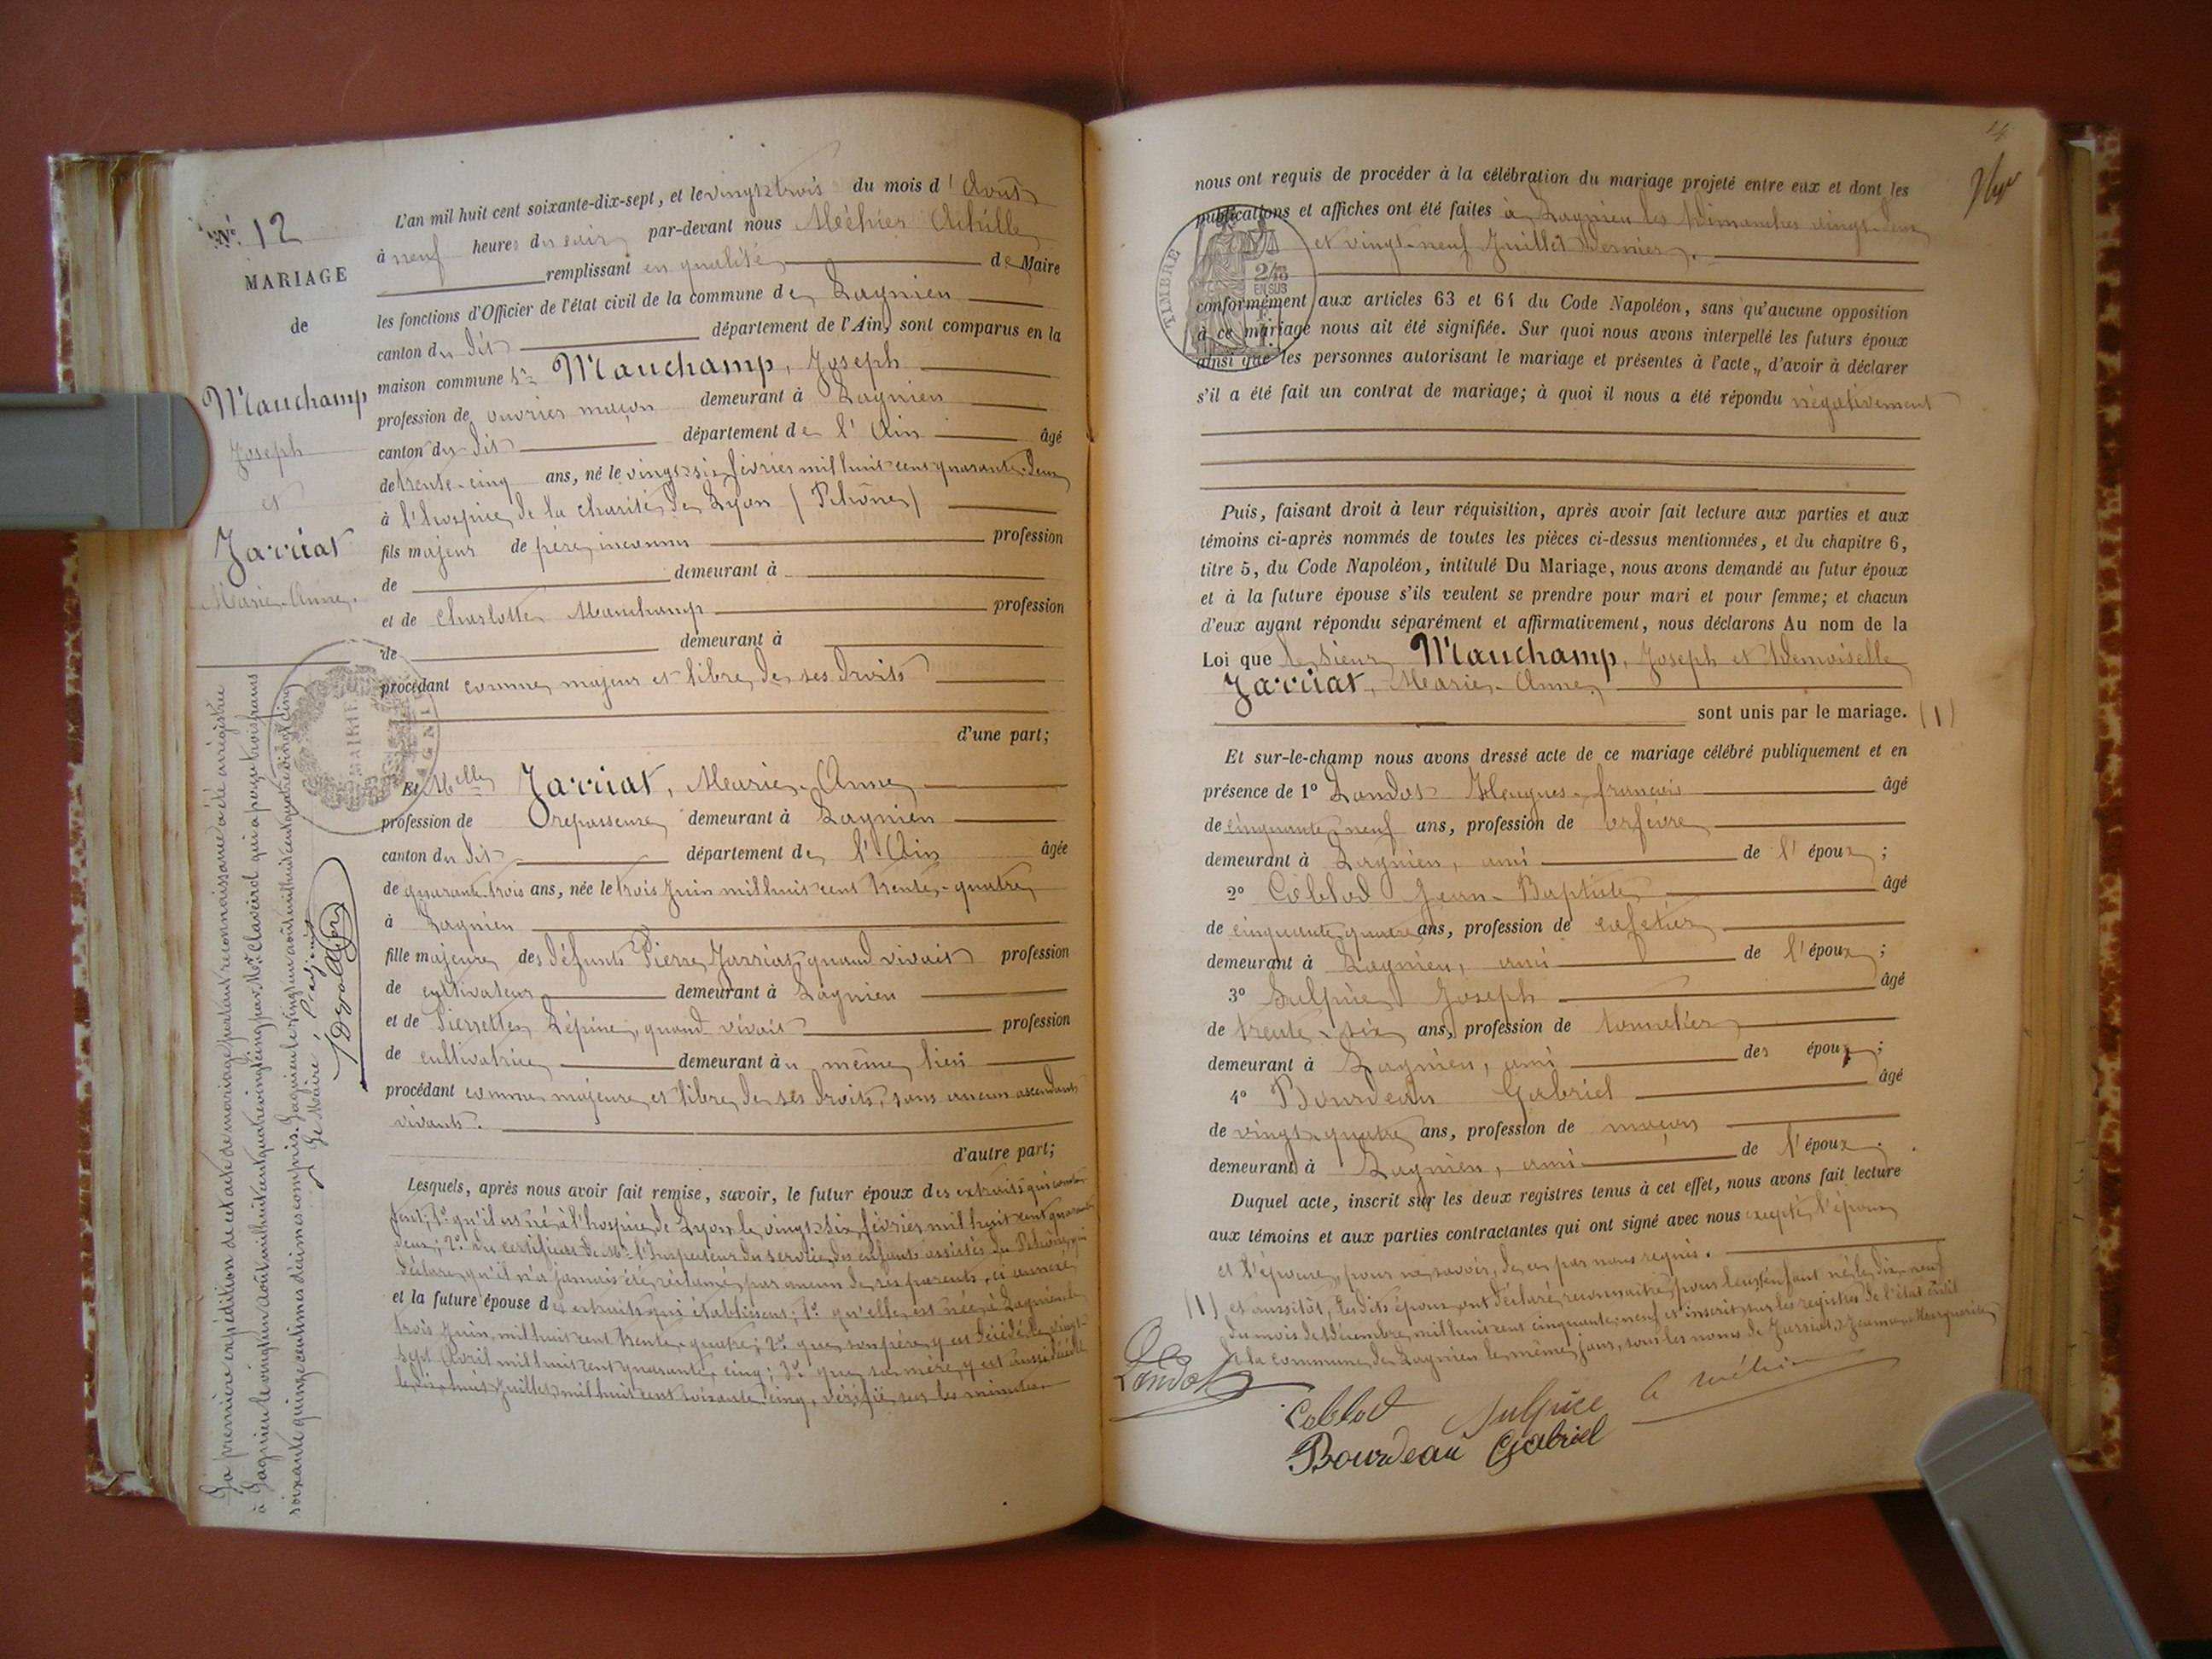 N.º 12
MARIAGE
de
Mauchamp
Joseph
et
Jarriat
Marie-Anne.
L'an mil huit cent soixante-dix-sept, et le vingt-trois du mois d'Août
à neuf heures du soir par-devant nous Méhier Achille
remplissant en qualité de Maire
les fonctions d'Officier de l'état civil de la commune de Lagnieu
canton du dit département de l'Ain, sont comparus en la
maison commune Sr Mauchamp, Joseph
profession de ouvrier maçon demeurant à Lagnieu
canton du dit département de l'Ain âgé
de trente-cinq ans, né le vingt-six février mil huit cent quarante-deux
à l'hospice de la charité de Lyon (Rhône)
fils majeur de père inconnu profession
de demeurant à
et de Charlotte Mauchamp profession
de demeurant à
procédant comme majeur et libre de ses droits
d'une part;
Et Melle Jarriat, Marie-Anne
profession de repasseuse demeurant à Lagnieu
canton du dit département de l'Ain âgée
de quarante-trois ans, née le trois Juin mil huit cent trente-quatre
à Lagnieu
fille majeure des défunts Pierre Jarriat, quand vivait profession
de cultivateur demeurant à Lagnieu
et de Pierrette Lépine, quand vivait profession
de cultivatrice demeurant au même lieu
procédant comme majeure et libre de ses droits, sans aucun ascendants
vivants.
d'autre part;
Lesquels, après nous avoir fait remise, savoir, le futur époux des extraits qui consta-
tent; 1º qu'il est né à l'hospice de Lyon le vingt-six février mil huit cent quarante
deux; 2º du certificat de Mr l'Inspecteur du service des enfants assistés du Rhône, qui
déclare qu'il n'a jamais été réclamé par aucun de ses parents, ci annexé
et la future épouse des extraits qui établissent; 1º qu'elle est née à Lagnieu le
trois Juin mil huit cent trente-quatre; 2º que son père y est décédé le vingt-
sept Avril mil huit cent quarante-cinq; 3º que sa mère y est aussi décédée
le dix-huit Juillet mil huit cent soixante-cinq, vérifié sur les minutes.
La première expédition de cet acte de mariage portant reconnaissance a été enregistrée
à Lagnieu le vingt un août mil huit cent quatre vingt cinq par Mr Claveird qui a perçu trois francs
soixante quinze centimes décimes compris. Lagnieu le vingt un août mil huit cent quatre vingt cinq
Le Maire: l'adjoint
MAIRIE
nous ont requis de procéder à la célébration du mariage projeté entre eux et dont les
publications et affiches ont été faites à Lagnieu les Dimanches vingt-deux
et vingt-neuf Juillet dernier.
TIMBRE
2/10
EN SUS
conformément aux articles 63 et 64 du Code Napoléon, sans qu'aucune opposition
à ce mariage nous ait été signifiée. Sur quoi nous avons interpellé les futurs époux
ainsi que les personnes autorisant le mariage et présentes à l'acte, d'avoir à déclarer
s'il a été fait un contrat de mariage; à quoi il nous a été répondu négativement
Puis, faisant droit à leur réquisition, après avoir fait lecture aux parties et aux
témoins ci-après nommés de toutes les pièces ci-dessus mentionnées, et du chapitre 6,
titre 5, du Code Napoléon, intitulé Du Mariage, nous avons demandé au futur époux
et à la future épouse s'ils veulent se prendre pour mari et pour femme; et chacun
d'eux ayant répondu séparément et affirmativement, nous déclarons Au nom de la
Loi que le sieur Mauchamp, Joseph et Demoiselle
Jarriat, Marie-Anne,
sont unis par le mariage. (1)
Et sur-le-champ nous avons dressé acte de ce mariage célébré publiquement et en
présence de 1º Landot Hugues-françois âgé
de cinquante-neuf ans, profession de orfèvre
demeurant à Lagnieu, ami de l'époux;
2º Coblod Jean-Baptiste âgé
de cinquante-quatre ans, profession de cafetier
demeurant à Lagnieu, ami de l'époux;
3º Sulpice Joseph âgé
de trente-six ans, profession de tonnelier
demeurant à Lagnieu, ami des époux;
4º Bourdeau Gabriel âgé
de vingt-quatre ans, profession de maçon
demeurant à Lagnieu, ami de l'époux.
Duquel acte, inscrit sur les deux registres tenus à cet effet, nous avons fait lecture
aux témoins et aux parties contractantes qui ont signé avec nous excepté l'époux
et l'épouse, pour ne savoir, de ce par nous requis.
(1) et aussitôt, les dits époux ont déclaré reconnaître pour leur enfant né le dix-neuf
du mois de Décembre mil huit cent cinquante-neuf et inscrit sur les registres de l'état civil
de la commune de Lagnieu le même jour, sous les noms de Jarriat Jeanne-Marguerite
Landot
Coblod Sulpice A Méhier
Bourdeau Gabriel